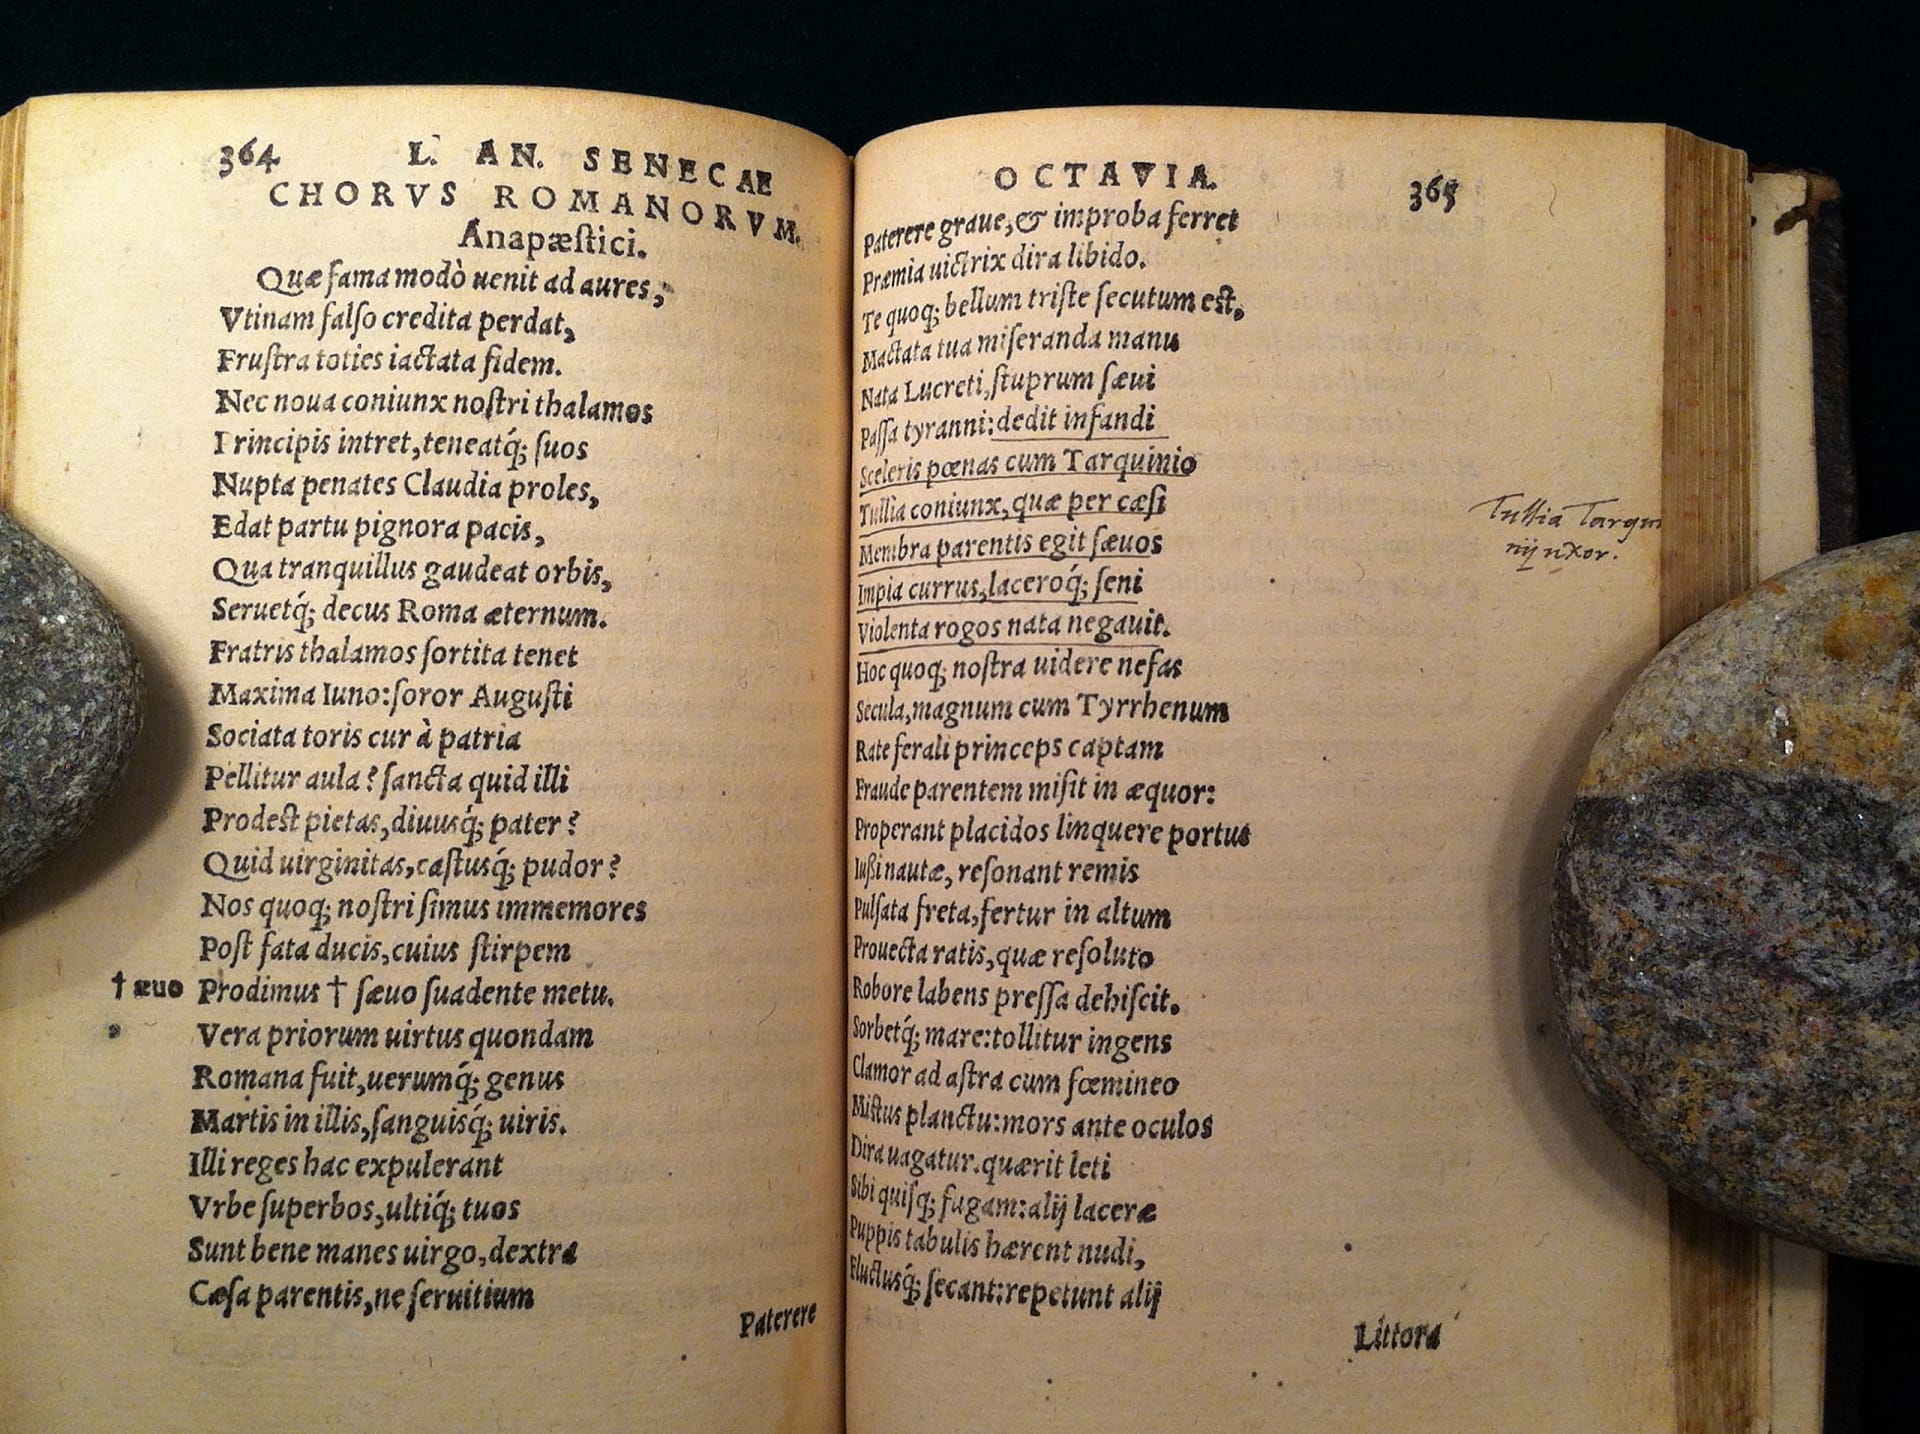 364 L. AN. SENECAE
CHORVS ROMANORVM.
Anapæſtici.
Quæ fama modò uenit ad aures,
Vtinam falſo credita perdat,
Fruſtra toties iactata fidem.
Nec noua coniunx noſtri thalamos
Principis intret, teneatq́; ſuos
Nupta penates Claudia proles,
Edat partu pignora pacis,
Qua tranquillus gaudeat orbis,
Seruetq́; decus Roma æternum.
Fratris thalamos ſortita tenet
Maxima Iuno: ſoror Auguſti
Sociata toris cur à patria
Pellitur aula? ſancta quid illi
Prodest pietas, diuusq́; pater?
Quid uirginitas, caſtusq́; pudor?
Nos quoq; noſtri ſimus immemores
Poſt fata ducis, cuius ſtirpem
† æuo Prodimus † ſæuo ſuadente metu.
Vera priorum uirtus quondam
Romana fuit, uerumq́; genus
Martis in illis, ſanguisq́; uiris.
Illi reges hac expulerant
Vrbe ſuperbos, ultiq́; tuos
Sunt bene manes uirgo, dextra
Cæſa parentis, ne ſeruitium
Paterere
OCTAVIA. 365
Paterere graue, & improba ferret
Præmia uictrix dira libido.
Te quoq; bellum triſte ſecutum est,
Mactata tua miſeranda manu
Nata Lucreti, ſtuprum ſæui
Paſſa tyranni: dedit infandi
Sceleris pœnas cum Tarquinio
Tullia coniunx, quæ per cæſi
Membra parentis egit ſæuos
Impia currus, laceroq́; ſeni
Violenta rogos nata negauit.
Tullia Tarqui
nij uxor.
Hoc quoq; noſtra uidere nefas
Secula, magnum cum Tyrrhenum
Rate ferali princeps captam
Fraude parentem miſit in æquor:
Properant placidos linquere portus
Iußi nautæ, reſonant remis
Pulſata freta, fertur in altum
Prouecta ratis, quæ reſoluto
Robore labens preſſa dehiſcit.
Sorbetq́; mare: tollitur ingens
Clamor ad aſtra cum fœmineo
Miſtus planctu: mors ante oculos
Dira uagatur. quærit leti
Sibi quiſq; fugam: alij laceræ
Puppis tabulis hærent nudi,
Fluctusq́; ſecant: repetunt alij
Littora